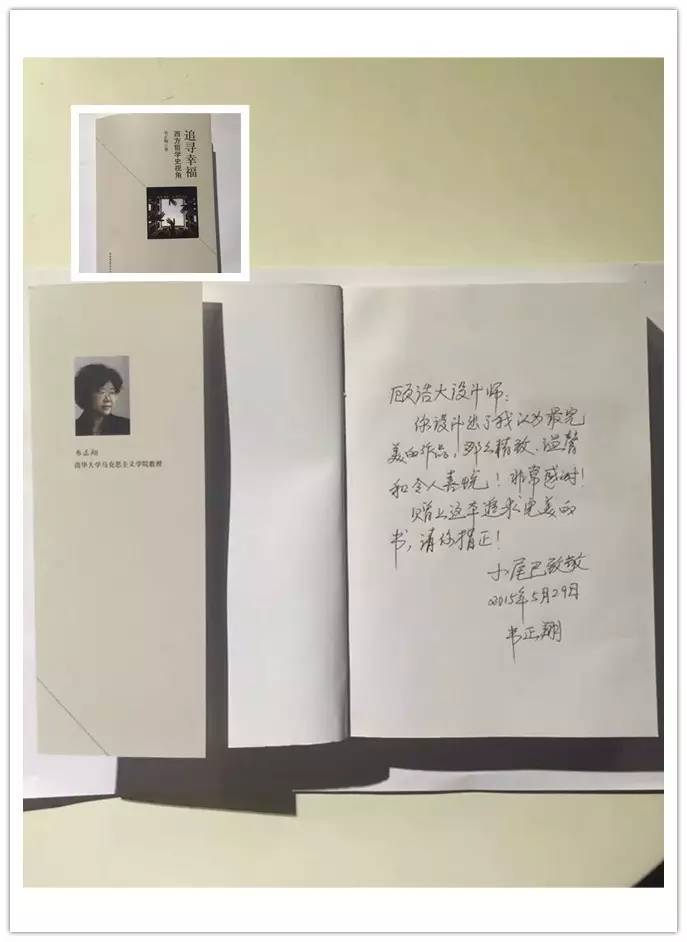 追寻幸福
西方哲学史视角
韦正翔 著
韦正翔
清华大学马克思主义学院教授
顾浩大设计师:
你设计出了我认为最完
美的作品,那么精致、温馨
和令人喜悦!非常感谢!
赠上这本追求完美的
书,请你指正!
小尾巴致敬
2015年5月29日
韦正翔